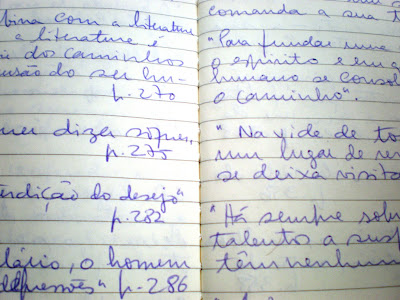 bina com a literatura
a literatura é
dos caminhos
são do ser hu-
p. 270
uer dizer sofrer,
p. 275
ndição do desejo"
p. 282
lário, o homem
depressões" p. 286
comanda a sua t
"Para fundar uma
o espírito e em a
humano se consol
o caminho".
"Na vida de to
um lugar de re
se deixa visita
"Há sempre sobr
talento a sus
têm nenhum